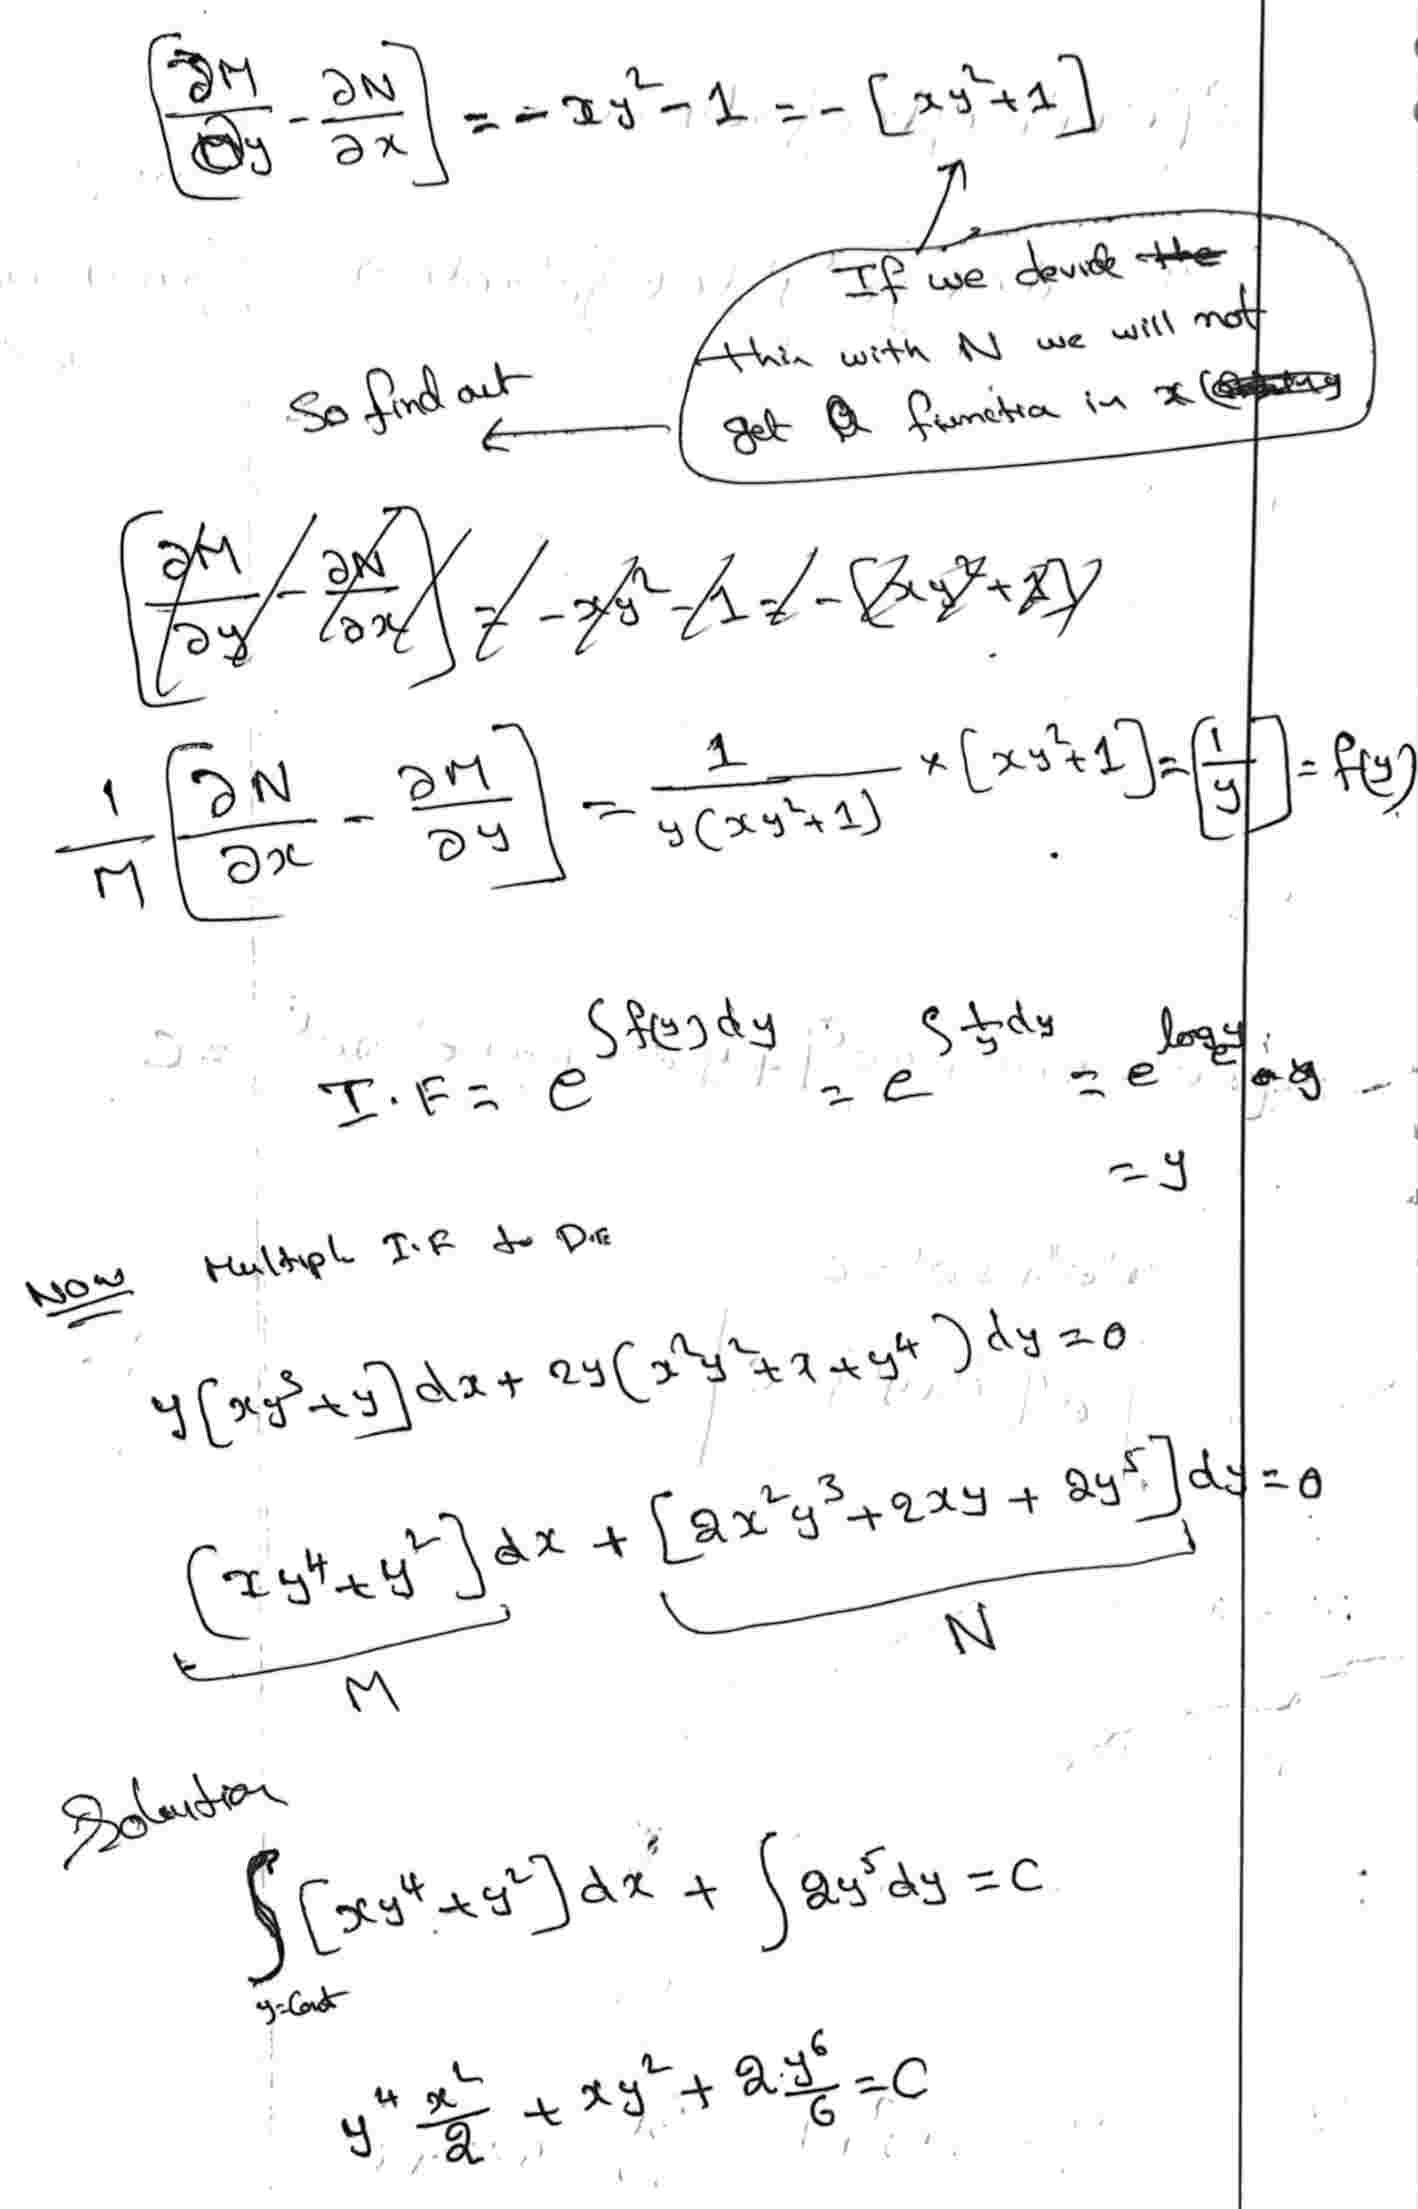 [∂M/∂y - ∂N/∂x] = - xy² - 1 = - [xy² + 1]
If we devide the
this with N we will not
get a function in x
So find out
[∂M/∂y - ∂N/∂x] = - xy² - 1 = - [xy² + 1]
1/M [∂N/∂x - ∂M/∂y] = 1/y(xy² + 1) × [xy² + 1] = [1/y] = f(y)
I.F = e^∫f(y)dy = e^∫1/y dy = e^log_e y
= y
Now Multiple I.F to D.E
y[xy³ + y]dx + 2y(x²y² + x + y⁴)dy = 0
[xy⁴ + y²]dx + [2x²y³ + 2xy + 2y⁵]dy = 0
M N
Solution
∫[xy⁴ + y²]dx + ∫2y⁵dy = C
y=Const
y⁴ x²/2 + xy² + 2·y⁶/6 = C